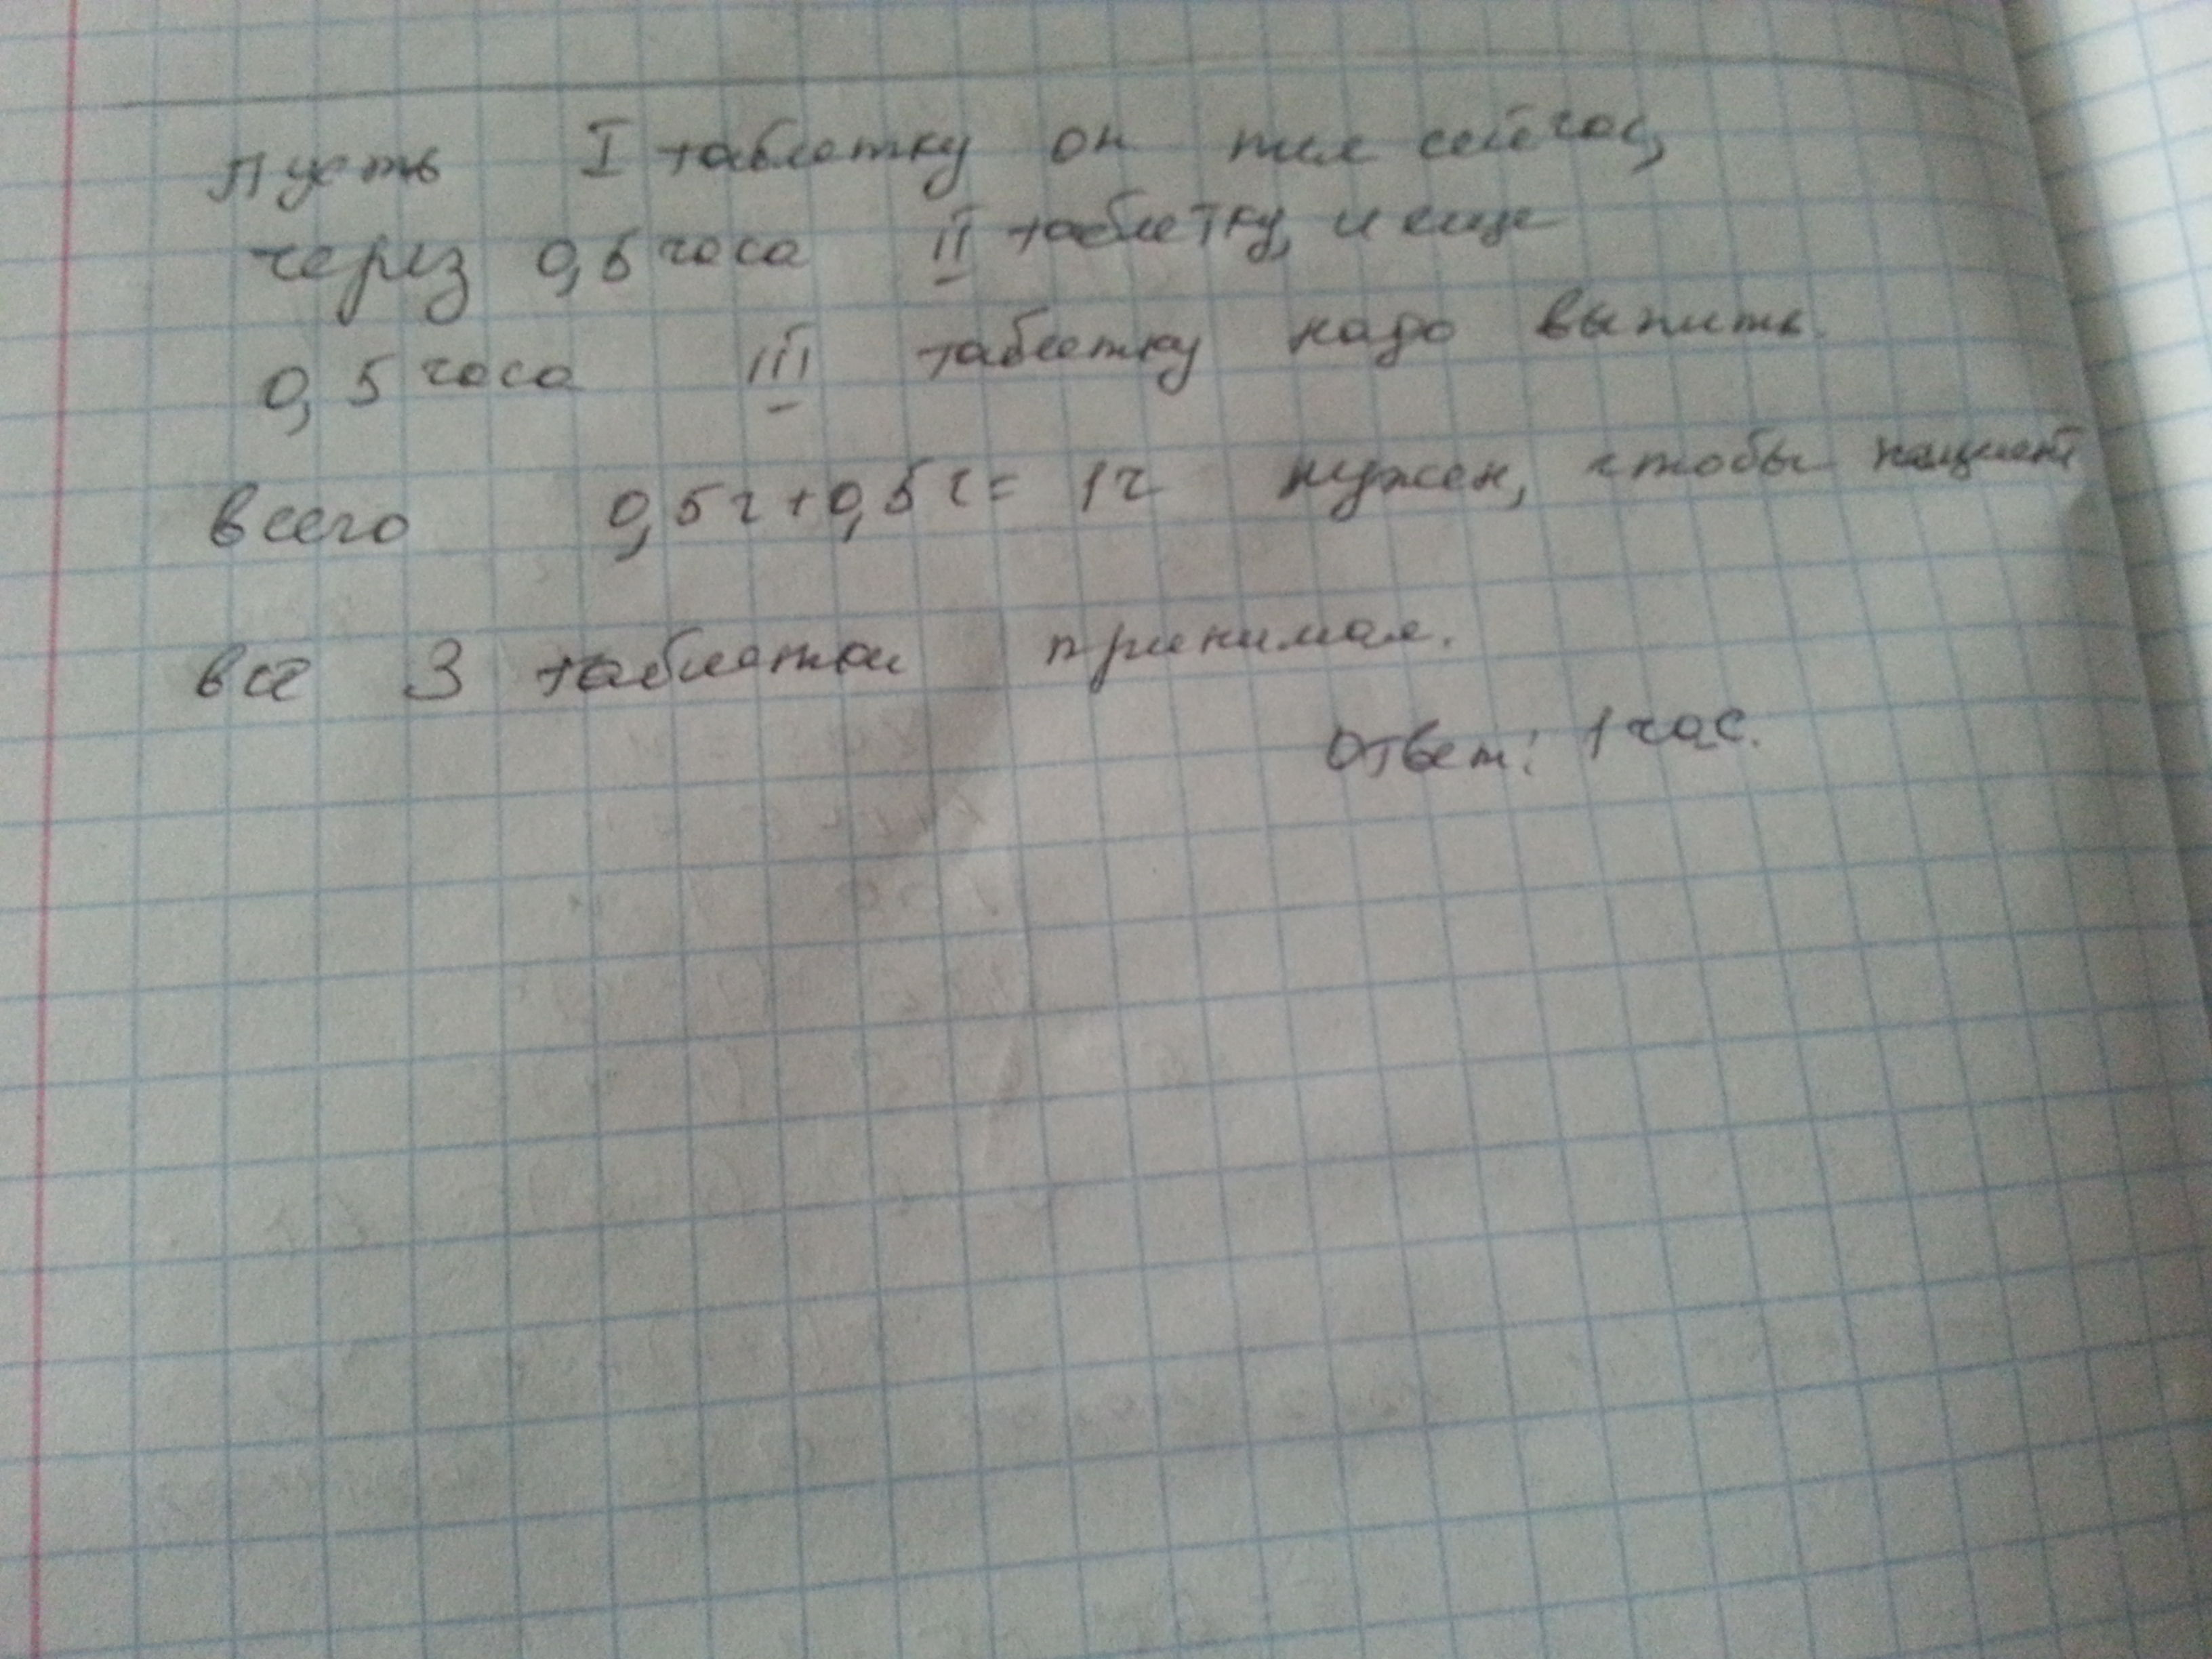 Пусть I таблетку он пил сейчас,
через 0,5 часа II таблетку, и еще
0,5 часа III таблетку надо выпить.
Всего 0,5ч+0,5ч= 1ч нужен, чтобы пациент
все 3 таблетки принимал.
Ответ: 1 час.